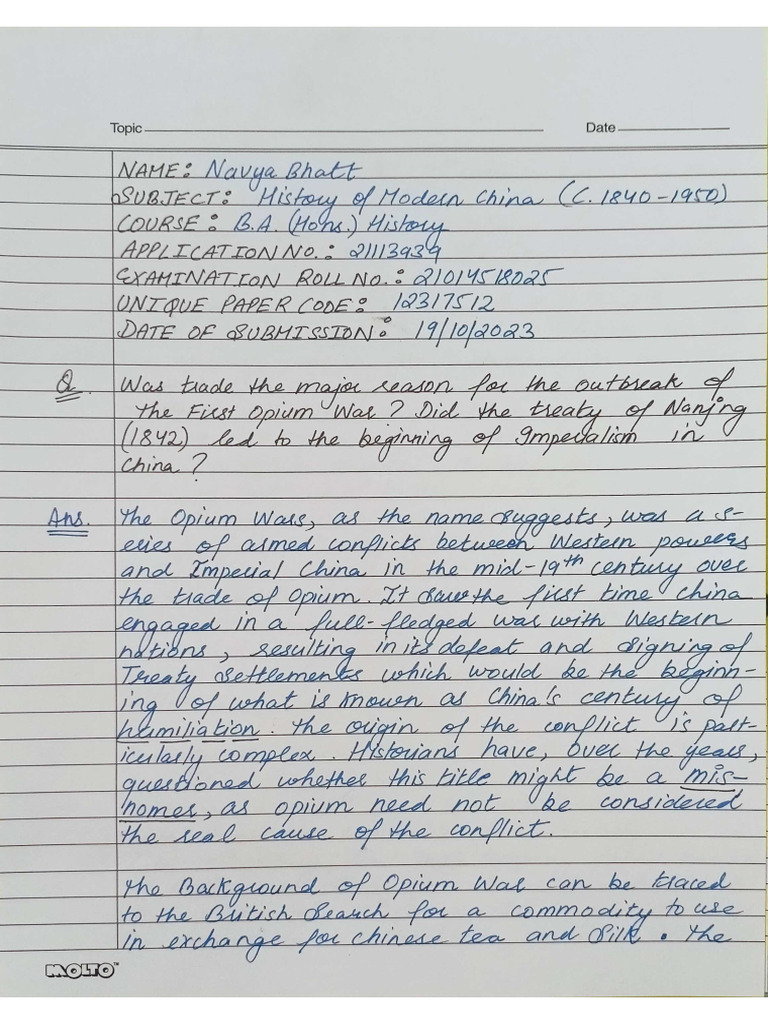 Topic
Date
NAME: Navya Bhatt
SUBJECT: History of Modern China (C. 1840-1950)
COURSE: B.A. (Hons.) History
APPLICATION NO.: 21113939
EXAMINATION ROLL NO.: 21014518025
UNIQUE PAPER CODE: 12317512
DATE OF SUBMISSION: 19/10/2023
Q. Was trade the major reason for the outbreak of
the First Opium War? Did the treaty of Nanjing
(1842) led to the beginning of Imperialism in
China?
Ans. The Opium Wars, as the name suggests, was a s-
eries of armed conflicts between Western powers
and Imperial China in the mid-19th century over
the trade of Opium. It saw the first time China
engaged in a full-fledged war with Western
nations, resulting in its defeat and signing of
Treaty settlements which would be the beginn-
ing of what is known as China's century of
humiliation. The origin of the conflict is part-
icularly complex. Historians have, over the years,
questioned whether this title might be a mis-
nomer, as opium need not be considered
the real cause of the conflict.
The Background of Opium War can be traced
to the British Search for a commodity to use
in exchange for Chinese tea and Silk. The
MOLTO™